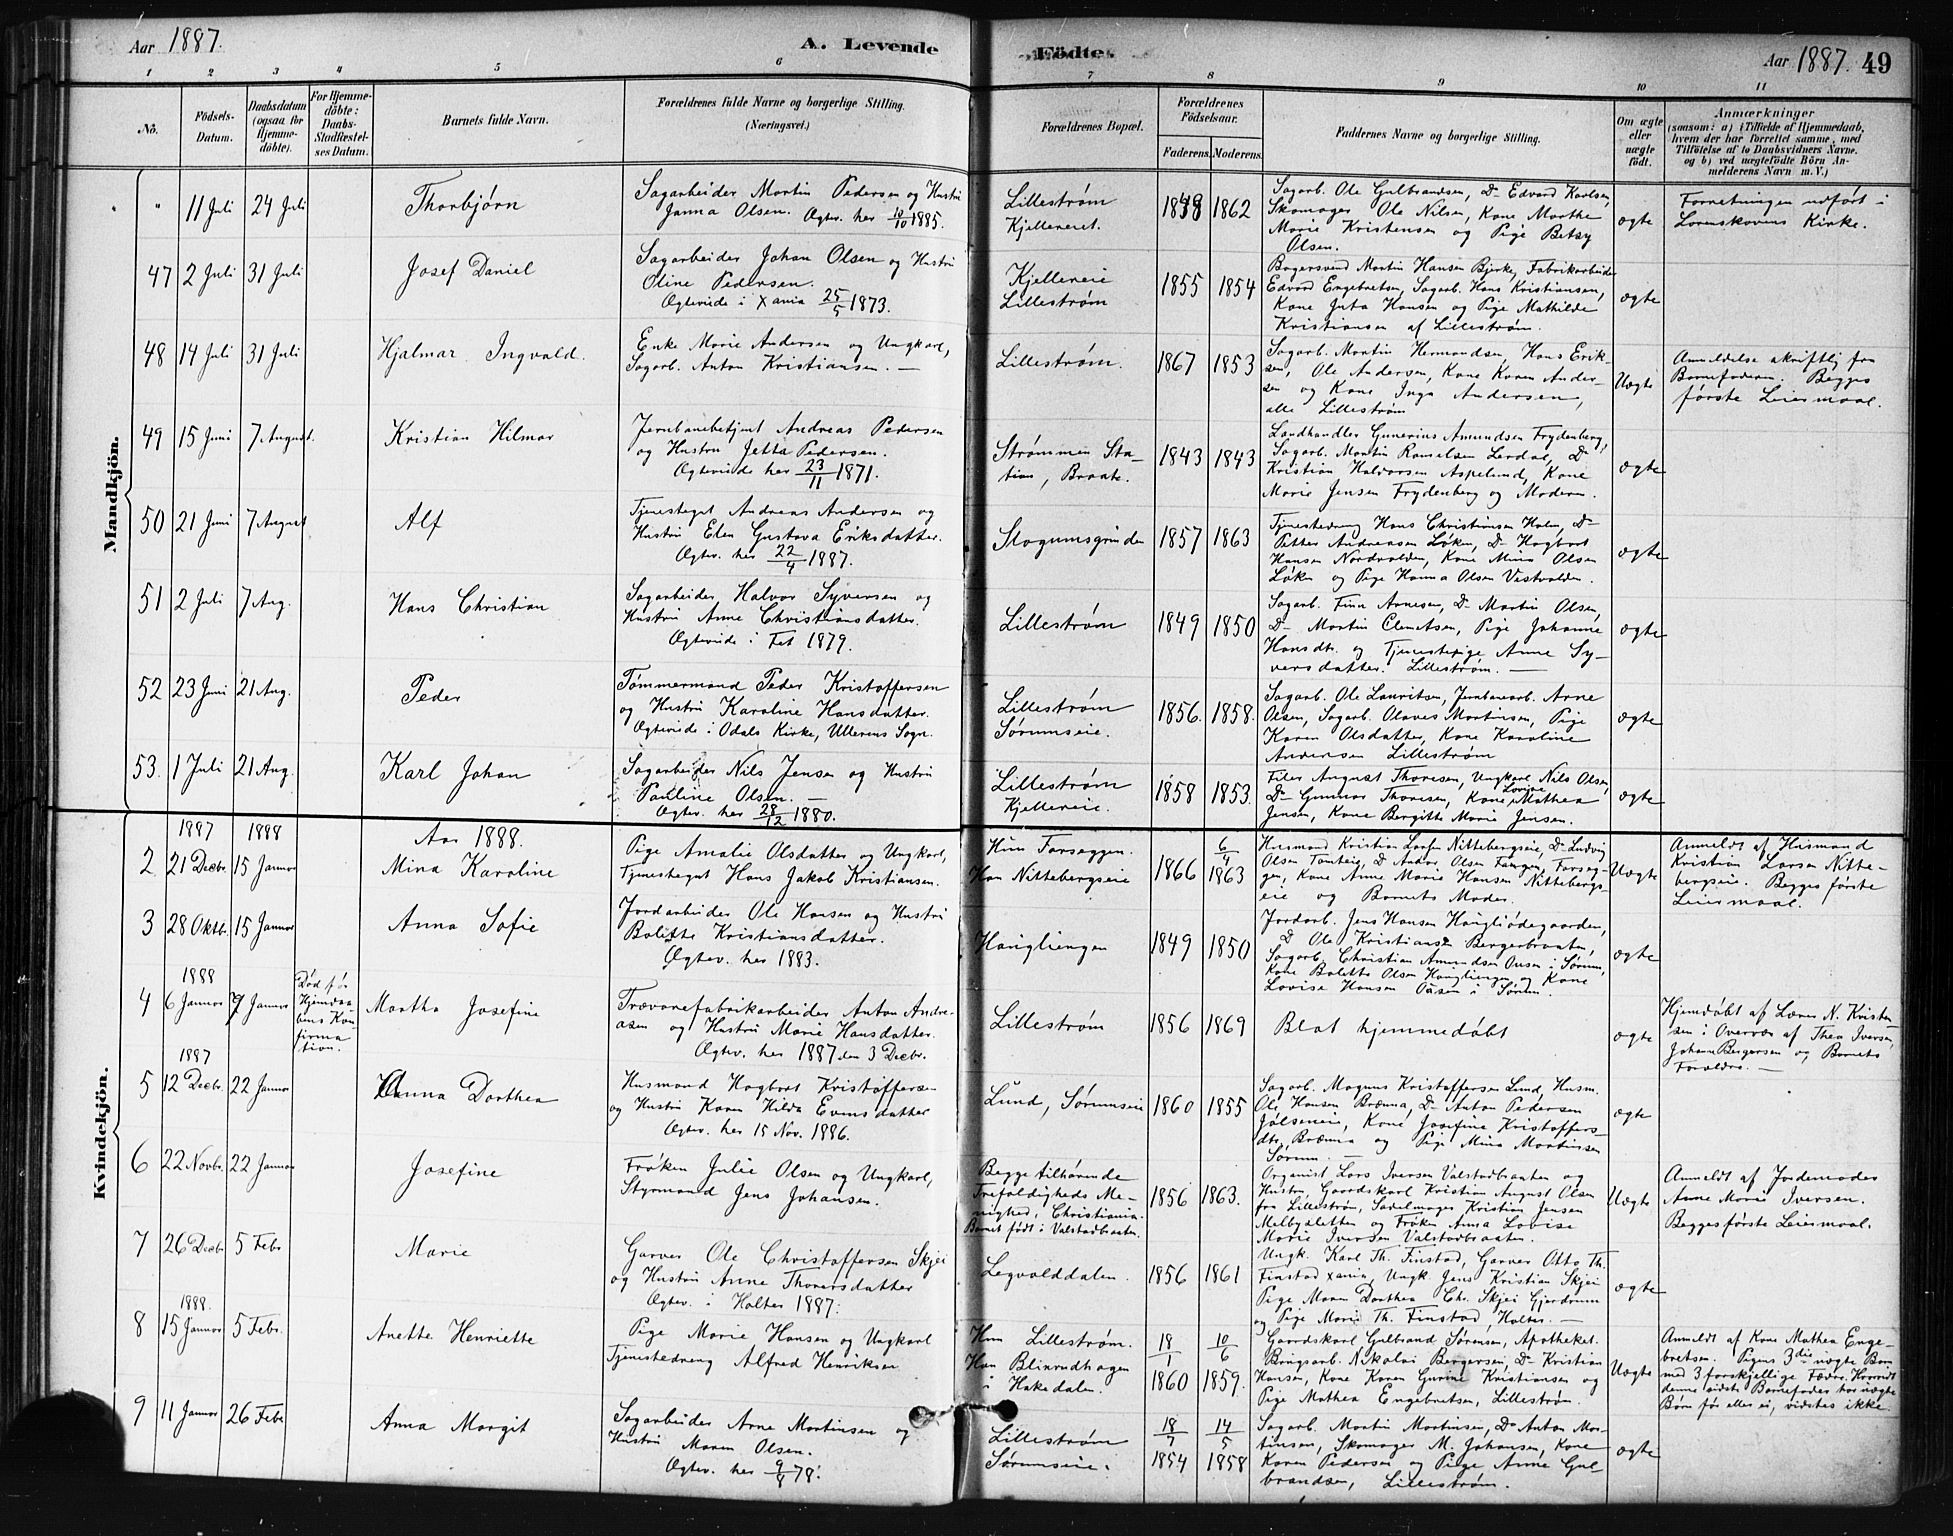 Aar 1887. A. Levende Födte. Aar 1887. 49
1 2 3 4 5 6 7 8 9 10 11
No.
Födsels-
Datum.
Daabsdatum
(ogsaa for
Hjemme-
döbte).
For Hjemme-
döbte:
Daabs-
Stadfæstel-
ses Datum.
Barnets fulde Navn.
Forældrenes fulde Navne og borgerlige Stilling.
(Næringsvei.)
Forældrenes Bopæl.
Forældrenes
Födselsaar.
Faderens. Moderens.
Faddernes Navne og borgerlige Stilling.
Om ægte
eller
uægte
födt.
Anmærkninger
(saasom: a) i Tilfælde af Hjemmedaab,
hvem der har forrettet samme, med
Tilföielse af to Daabsvidners Navne,
og b) ved uægtefödte Börn An-
melderens Navn m. V.)
Mandkjön.
" " 11 Juli 24 Juli
Thorbjørn
Sagarbeider Martin Pedersen og Hustru
Janna Olsen. Ægtev. her 10/10 1885.
Lillestrøm
Kjellereiet.
1862
Sagarb. Ole Gulbrandsen, Do Edvard Karlsen,
Skomager Ole Nilsen, Kone Marthe
Marie Kristensen og Pige Betsy
Olsen.
ægte
Forretningen udført i
Lørenskovens Kirke.
47 2 Juli 31 Juli
Josef Daniel
Sagarbeider Johan Olsen og Hustru
Oline Pedersen.
Ægteviede i Xania 25/5 1873.
Kjellereie
Lillestrøm
1855 1854
Bagersvend Martin Hansen Bjerke, Fabrikarbeider
Edvard Engebretsen, Sagarb. Hans Kristiansen,
Kone Juta Hansen og Pige Mathilde
Kristiansen af Lillestrøm.
ægte
48 14 Juli 31 Juli
Hjalmar Ingvald.
Enke Marie Andersen og Ungkarl,
Sagarb. Anton Kristiansen. —
Lillestrøm.
1867 1853
Sagarb. Martin Hermandsen, Hans Erik-
sen, Ole Andersen, Kone Karen Ander-
sen og Kone Inga Andersen,
alle Lillestrøm
Uægte
Anmeldelse skriftlig fra
Barnefaderen. Begges
første Leiermaal.
49 15 Juni 7 August.
Kristian Hilmar
Jernbanebetjent Andreas Pedersen
og Hustru Jetta Pedersen.
Ægteviede her 23/11 1871.
Strømmen Sta-
tion, Braate.
1843 1843
Landhandler Gunerius Amundsen Frydenberg,
Sagarb. Martin Lerdal, Do
Kristian Halvorsen Aspelund, Kone
Marie Jensen Frydenberg og Moderen.
ægte
50 21 Juni 7 August
Alf
Tjenestegut Andreas Andersen og
Hustru Elen Gustava Eriksdatter.
Ægtev. her 22/4 1887.
1857 1863
Tjenestedreng Hans Christiansen Holm, Do
Petter Andreasen Løken, Do Hagbart
Hansen Nordvolden, Kone Mina Olsen
Løken og Pige Hanna Olsen Vestvolden.
ægte
51 2 Juli 7 Aug.
Hans Christian
Sagarbeider Halvor Syversen og
Hustru Anne Christiansdatter.
Ægteviede i Fet 1879.
Lillestrøm
1849 1850
Sagarb. Finn Arnesen, Do Martin Olsen,
Do Martin Clemetsen, Pige Johanne
Hansdtr. og Tjenestepige Anne Sy-
versdatter. Lillestrøm. —
ægte
52 23 Juni 21 Aug.
Peder
Tømmermand Peder Kristoffersen
og Hustru Karoline Hansdatter.
Ægteviede i Odals Kirke, Ullerens Sogn.
Lillestrøm
Sørumseie.
1856. 1858.
Sagarb. Ole Lauritsen, Jernbanearb. Arne
Olsen, Sagarb. Olaves Martinsen, Pige
Karen Olsdatter, Kone Karoline
Andersen Lillestrøm
ægte
53. 1 Juli 21 Aug.
Karl Johan
Sagarbeider Nils Jensen og Hustru
Pauline Olsen. —
Ægtev. her 28/12 1880.
Lillestrøm
Kjellereie.
1858 1853.
Filer August Thoresen, Ungkarl Nils Olsen,
Do Gunnar Thoresen, Kone Lovise Mathea
Jensen, Kone Bergitte Marie Jensen.
ægte
Kvindekjön.
1887 1888 Aar 1888.
2 21 Decbr. 15 Januar
Mina Karoline
Pige Amalie Olsdatter og Ungkarl,
Tjenestegut Hans Jakob Kristiansen.
Hun Farseggen.
Han Nittebergseie
1866 6/4 1863
Husmand Kristian Larsen Nittebergseie, Do Ludvig
Olsen Tomteig, Do Andor. Olsen Fangen, Farseg-
gen, Kone Anne Marie Hansen Nittebergs-
eie og Barnets Moder.
Uægte
Anmeldt af Husmand
Kristian Larsen Nitte-
bergseie. Begges første
Leiermaal.
3 28 Oktbr. 15 Januar
Anna Sofie
Jordarbeider Ole Hansen og Hustru
Bolette Kristiansdatter.
Ægtev. her 1883.
Haugliengen
1849 1850
Jordarb. Jens Hansen Haugliødegaarden,
Do Ole Kristiansen Bergerbraaten,
Sagarb. Christian Amundsen Ousen i Sørum,
Kone Bolette Olsen Haugliengen og Kone
Lovise Hansen Oüsen i Sørum.
ægte
1888
4 6 Januar 7 Januar
Død før
Hjemdaa-
bens Kon-
firma
tion.
Martha Josefine
Trævarefabrikarbeider Anton Andre-
asen og Hustru Marie Hansdatter.
Ægtev. her 1887 den 3 Decbr.
Lillestrøm
1856 1869
Blot hjemmedøbt
ægte
Hjemdøbt af Lærer N. Kristen-
sen i Overvær af Thea Iversen,
Johanne Bergersen og Barnets
Forældre. —
1887
5 12 Decbr. 22 Januar
Anna Dorthea
Husmand Hagbart Kristoffersen
og Hustru Karen Hilda Evensdatter
Ægtev. her 15 Nov. 1886.
Lund, Sørumseie
1860 1855
Sagarb. Magnus Kristoffersen Lund, Husm.
Ole Hansen Brænna, Do Anton Pedersen
Jølseneie, Kone Josefine Kristoffers-
dtr. Brænna og Pige Mina Martinsen
Sørum. —
ægte
6 22 Novbr. 22 Januar
Josefine
Frøken Julie Olsen og Ungkarl,
Styrmand Jens Johansen.
Begge tilhørende
Trefoldigheds Me-
nighed, Christiania.
Barnet født i Valstadbraaten.
1856 1863.
Organist Lars Iversen Valstadbraaten og
Hustru, Gaardskarl Kristian August Olsen
fra Lillestrøm, Sadelmager Kristian Jensen
Melbysletten og Frøken Anna Lovise
Marie Iversen Valstadbraaten.
Uægte
Anmeldt af Jordemoder
Anne Marie Iversen.
Begges første Leiermaal.
7 26 Decbr 5 Febr
Marie
Garver Ole Christoffersen Skjei
og Hustru Anne Thorersdatter
Ægtev. i Holter 1887.
Legvolddalen.
1856 1861
Ungk. Karl Th. Finstad, Garver Otto Th.
Finstad Xania, Ungk. Jens Kristian Skjei
Pige Maren Dorthea Chr. Skjei Gjerdrum
og Pige Marie Th. Finstad, Holter. —
ægte
1888.
8 15 Januar 5 Febr.
Anette Henriette
Pige Marie Hansen og Ungkarl
Tjenestedreng Alfred Henriksen
Hun Lillestrøm.
Han Blinrudhagen
i Hakedalen.
18/1 1860 10/6 1859.
Gaardskarl Gulbrand Sørensen, Apotheket.
Brugsarb. Nikolai Bergersen, Do Kristian
Hansen, Kone Karen Gurine Kristiansen og
Pige Mathea Engebretsen, Lillestrøm.
Uægte
Anmeldt af Kone Mathea Enge-
bretsen. Pigens 3die uægte Barn
med 3 forskjellige Fædre. Hvorvidt
denne sidste Barnefader har uægte
Børn før eller ei, vidstes ikke.
9 11 Januar 26 Febr
Anna Margit
Sagarbeider Arne Martinsen og
Hustru Maren Olsen.
Ægtev. her 9/8 78.
Lillestrøm
Sørumseie.
18/7 1854 14/5 1858
Sagarb. Martin Martinsen, Do Anton Mar-
tinsen, Skomager M. Johansen, Kone
Karen Pedersen og Pige Anne Gul-
brandsen, Lillestrøm.
ægte